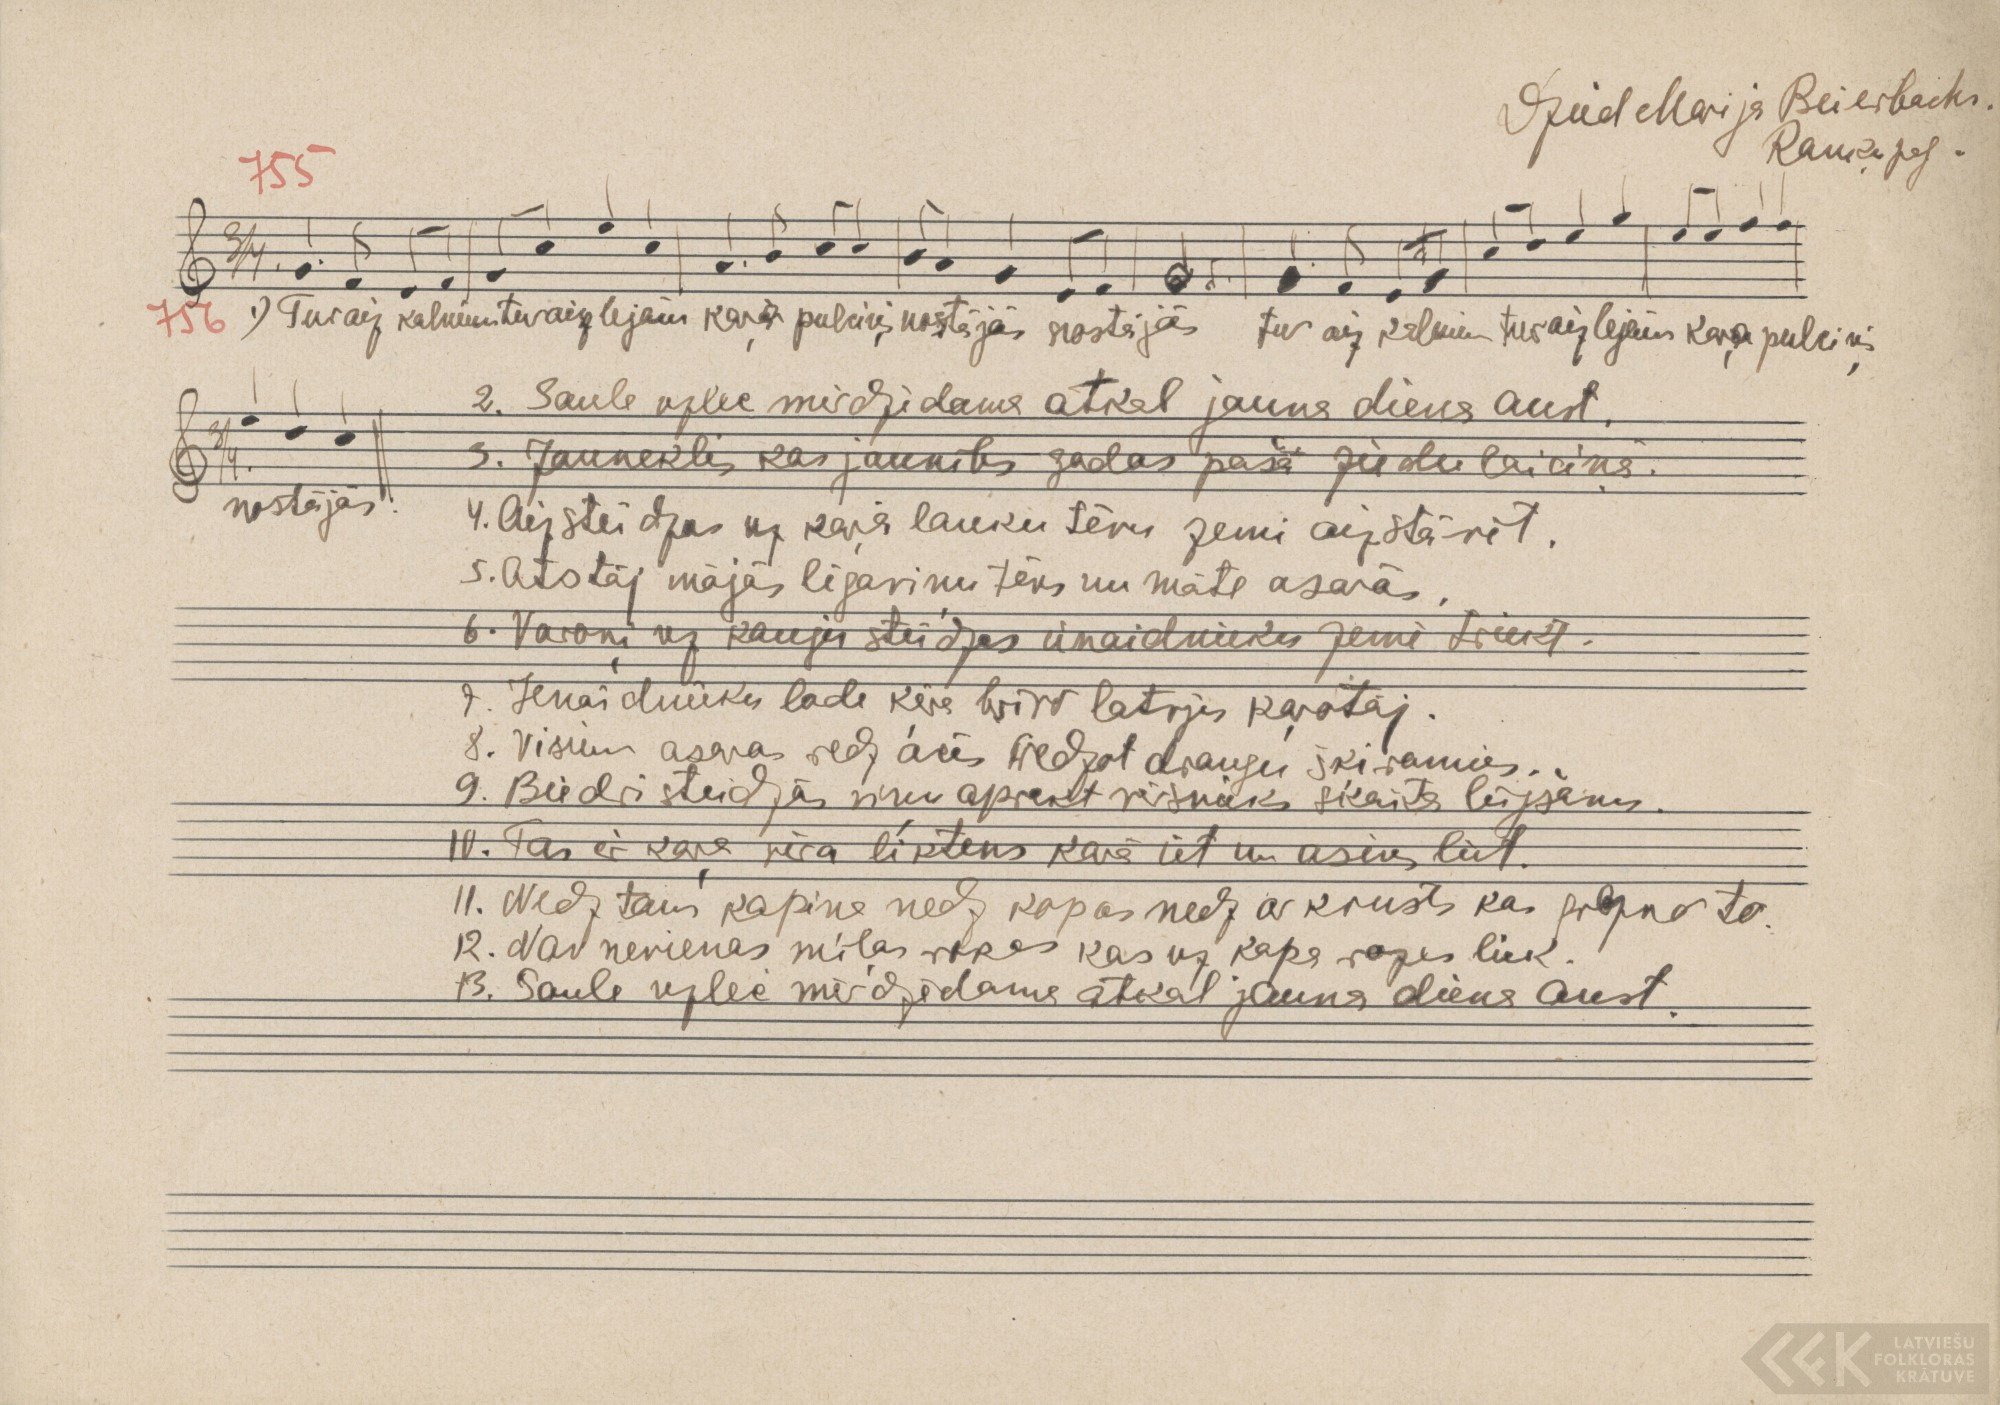 Dzied Marija Beierbachs.
Rankas pag.
755
3/4.
756 1) Tur aiz kalniem tur aiz lejām kaŗa pulciņi nostājās nostājās tur aiz kalniem tur aiz lejām kaŗa pulciņi
3/4.
nostājās.
2. Saule uzlec mirdzēdama atkal jauna diena aust.
3. Jauneklis kas jaunības gados pašā ziedu laiciņā.
4. Aizsteidzas uz kaŗa lauku tēvu zemi aizstāvēt.
5. Atstāj mājās līgaviņu tēvs un māte asarās.
6. Varoņi uz kauju steidzas ienaidnieku zemē triekt.
7. Ienaidnieku lode ķēra brīvo latvju kaŗotāj.
8. Visiem asaras redz acīs redzot draugu šķiramies.
9. Biedri steidzās viņu aprakt virsnieks skaita lūgšanu.
10. Tas ir kaŗa vīra liktens karā iet un asinis liet.
11. Nedz tam kapiņa nedz kopas nedz ar krusts kas grezno to.
12. Nav nevienas mīļas rokas kas uz kapa rozes liek.
13. Saule uzlec mirdzēdama atkal jauna diena aust.
LATVIEŠU
FOLKLORAS
KRĀTUVE